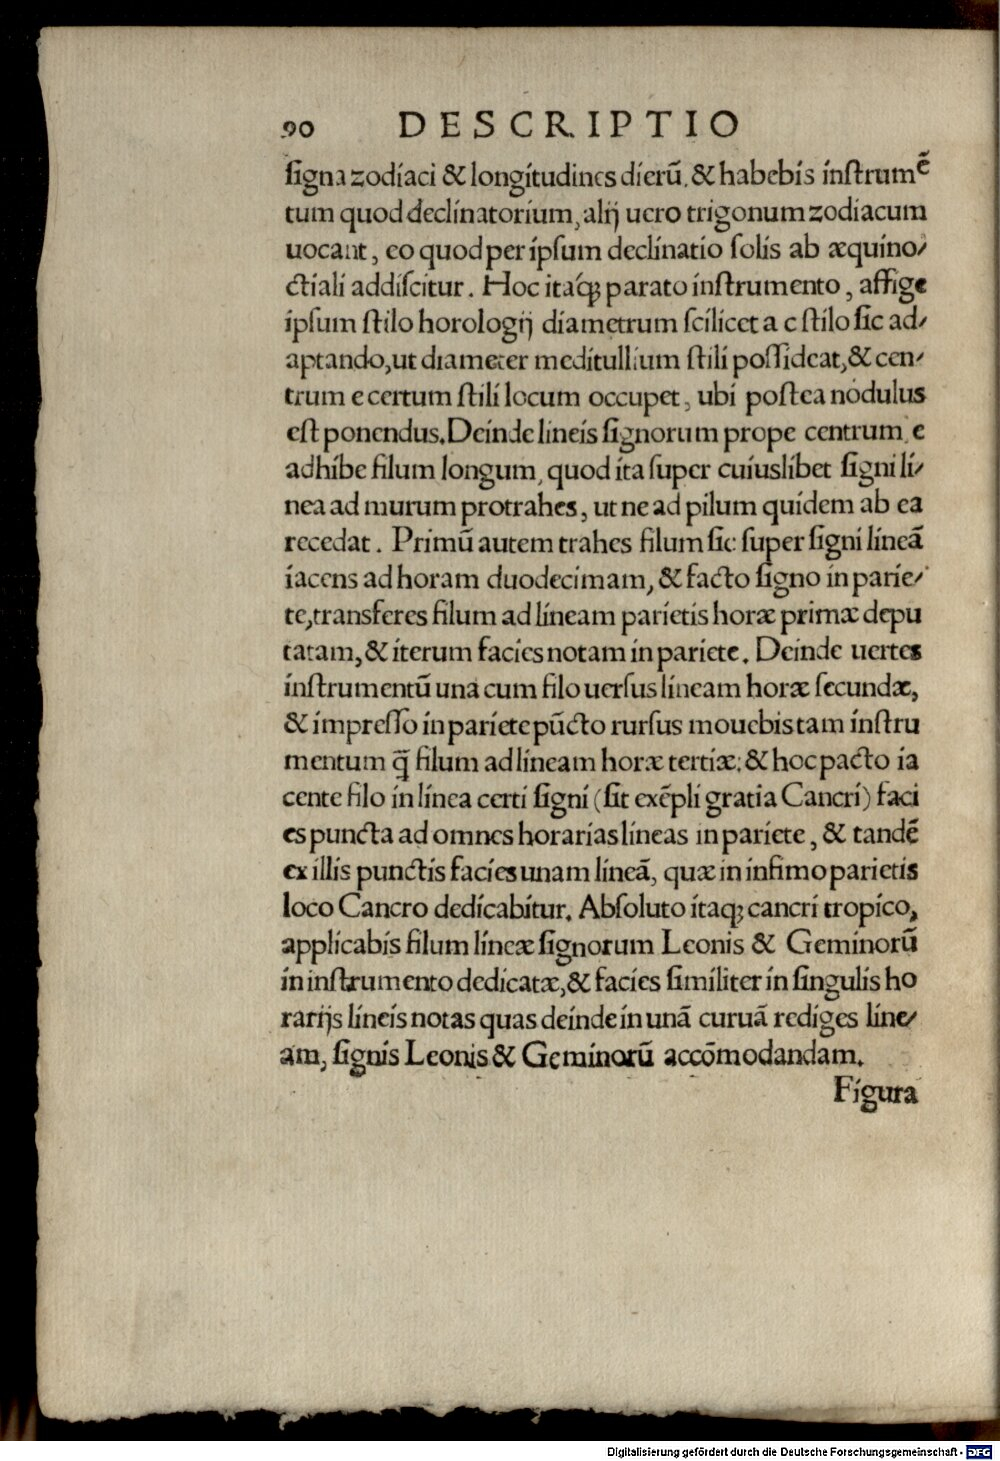 90 DESCRIPTIO
ſigna zodiaci & longitudines dierũ. & habebis inſtrumẽ
tum quod declinatorium, alij uero trigonum zodiacum
uocant, eo quod per ipſum declinatio ſolis ab æquino/
ctiali addiſcitur. Hoc itaq́ꝫ parato inſtrumento, affige
ipſum ſtilo horologij diametrum ſcilicet a c ſtilo ſic ad/
aptando, ut diameter meditullium ſtili poſſideat, & cen/
trum e certum ſtili locum occupet, ubi poſtea nodulus
eſt ponendus. Deinde lineis ſignorum prope centrum e
adhibe filum longum, quod ita ſuper cuiuslibet ſigni li/
nea ad murum protrahes, ut ne ad pilum quidem ab ea
recedat. Primũ autem trahes filum ſic ſuper ſigni lineã
iacens ad horam duodecimam, & facto ſigno in parie/
te, transferes filum ad lineam parietis horæ primæ depu
tatam, & iterum facies notam in pariete. Deinde uertes
inſtrumentũ una cum filo uerſus lineam horæ ſecundæ,
& impreſſo in pariete pũcto rurſus mouebis tam inſtru
mentum q̃ filum ad lineam horæ tertiæ: & hoc pacto ia
cente filo in linea certi ſigni (ſit exẽpli gratia Cancri) faci
es puncta ad omnes horarias lineas in pariete, & tandẽ
ex illis punctis facies unam lineã, quæ in infimo parietis
loco Cancro dedicabitur. Abſoluto itaqꝫ cancri tropico,
applicabis filum lineæ ſignorum Leonis & Geminorũ
in inſtrumento dedicatæ, & facies ſimiliter in ſingulis ho
rarijs lineis notas quas deinde in unã curuã rediges line/
am, ſignis Leonis & Geminorũ accõmodandam.
Figura
Digitalisierung gefördert durch die Deutsche Forschungsgemeinschaft - DFG